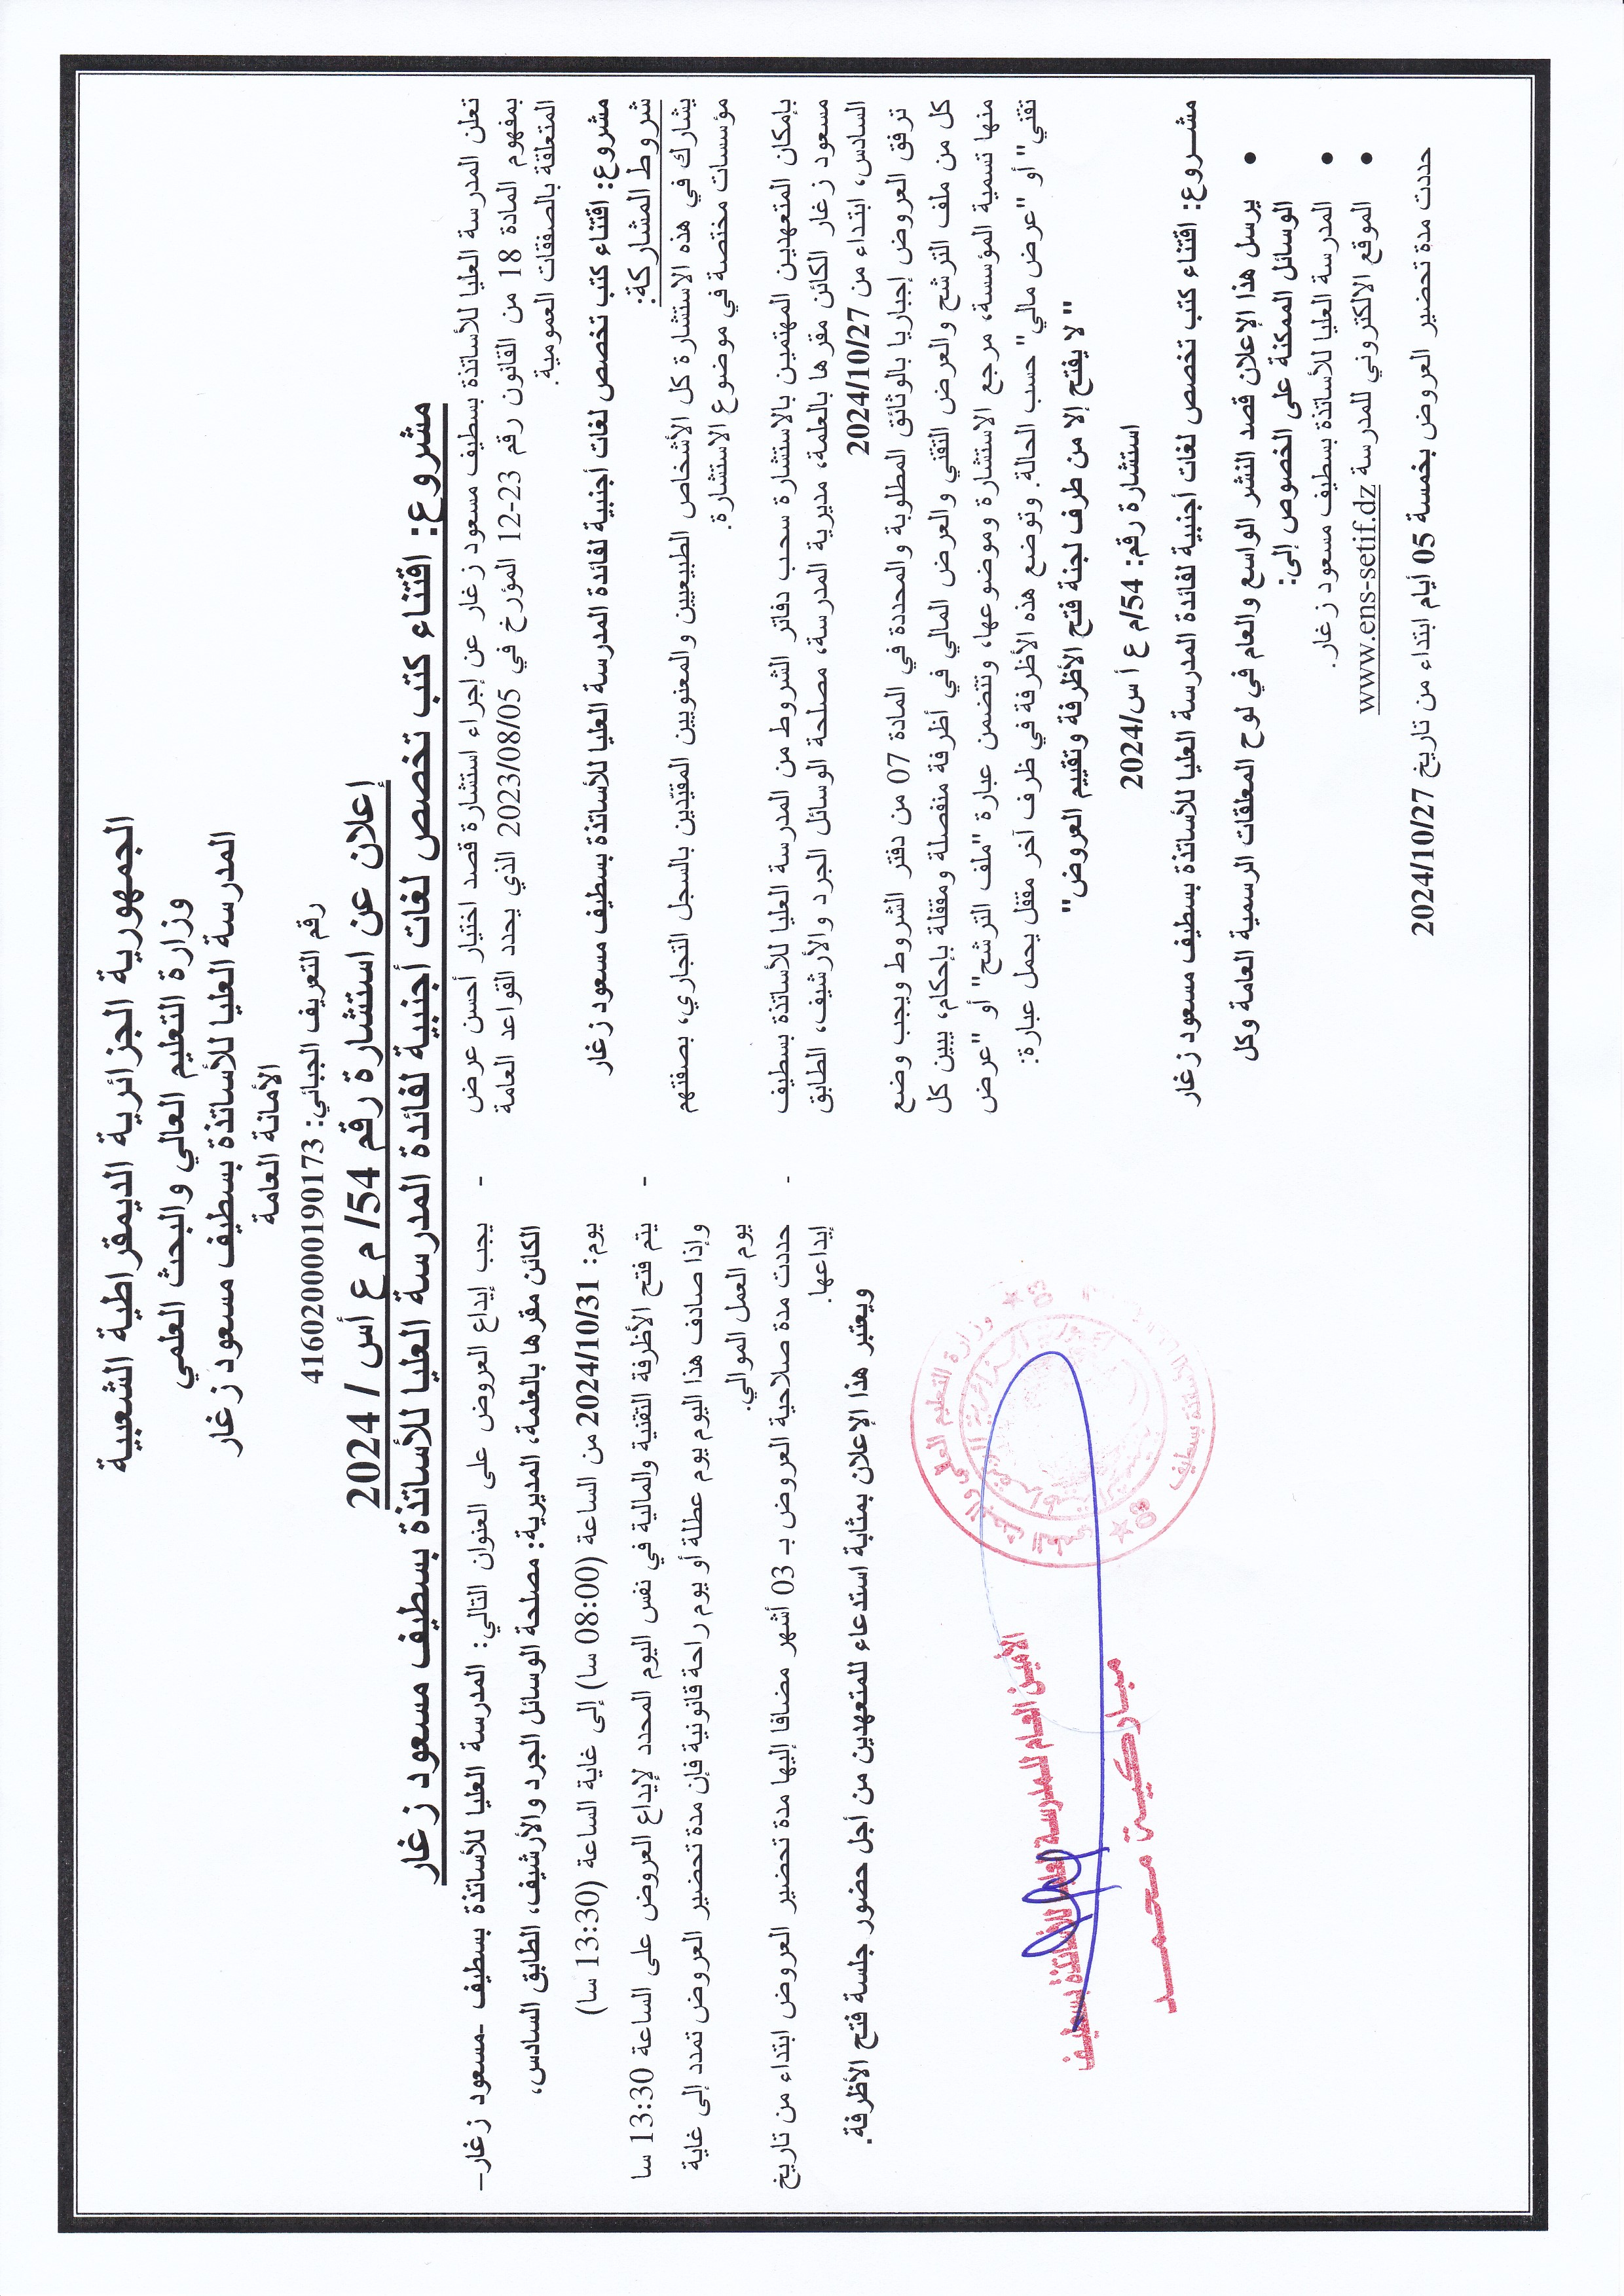 الجمهورية الجزائرية الديمقراطية الشعبية
وزارة التعليم العالي والبحث العلمي
المدرسة العليا للأساتذة بسطيف مسعود زغار
الأمانة العامة
رقم التعريف الجبائي: 416020000190173
إعلان عن استشارة رقم 54/ م ع أس / 2024
مشروع: اقتناء كتب تخصص لغات أجنبية لفائدة المدرسة العليا للأساتذة بسطيف مسعود زغار
تعلن المدرسة العليا للأساتذة بسطيف مسعود زغار عن إجراء استشارة قصد اختيار أحسن عرض
بمفهوم المادة 18 من القانون رقم 23-12 المؤرخ في 2023/08/05 الذي يحدد القواعد العامة
المتعلقة بالصفقات العمومية.
مشروع: اقتناء كتب تخصص لغات أجنبية لفائدة المدرسة العليا للأساتذة بسطيف مسعود زغار
شروط المشاركة:
يشارك في هذه الاستشارة كل الأشخاص الطبيعيين والمعنويين المقيّدين بالسجل التجاري، بصفتهم
مؤسسات مختصة في موضوع الاستشارة.
بإمكان المتعهدين المهتمين بالاستشارة سحب دفاتر الشروط من المدرسة العليا للأساتذة بسطيف
مسعود زغار الكائن مقرها بالعلمة، مديرية المدرسة، مصلحة الوسائل الجرد والأرشيف، الطابق
السادس، ابتداء من 2024/10/27
ترفق العروض إجباريا بالوثائق المطلوبة والمحددة في المادة 07 من دفتر الشروط ويجب وضع
كل من ملف الترشح والعرض التقني والعرض المالي في أظرفة منفصلة ومقفلة بإحكام، يبين كل
منها تسمية المؤسسة، مرجع الاستشارة وموضوعها، وتتضمن عبارة "ملف الترشح" أو "عرض
تقني" أو "عرض مالي" حسب الحالة. وتوضع هذه الأظرفة في ظرف آخر مقفل يحمل عبارة:
"لا يفتح إلا من طرف لجنة فتح الأظرفة وتقييم العروض"
استشارة رقم: 54/م ع أ س/2024
مشـــروع: اقتناء كتب تخصص لغات أجنبية لفائدة المدرسة العليا للأساتذة بسطيف مسعود زغار
• يرسل هذا الإعلان قصد النشر الواسع والعام في لوح المعلقات الرسمية العامة وكل
الوسائل الممكنة على الخصوص إلى:
• المدرسة العليا للأساتذة بسطيف مسعود زغار.
• الموقع الالكتروني للمدرسة www.ens-setif.dz
حددت مدة تحضير العروض بخمسة 05 أيام ابتداء من تاريخ 2024/10/27
- يجب إيداع العروض على العنوان التالي: المدرسة العليا للأساتذة بسطيف -مسعود زغار–
الكائن مقرها بالعلمة، المديرية: مصلحة الوسائل الجرد والأرشيف، الطابق السادس،
يوم: 2024/10/31 من الساعة (08:00 سا) إلى غاية الساعة (13:30 سا)
- يتم فتح الأظرفة التقنية والمالية في نفس اليوم المحدد لإيداع العروض على الساعة 13:30 سا
وإذا صادف هذا اليوم يوم عطلة أو يوم راحة قانونية فإن مدة تحضير العروض تمدد إلى غاية
يوم العمل الموالي.
- حددت مدة صلاحية العروض بـ 03 أشهر مضافا إليها مدة تحضير العروض ابتداء من تاريخ
إيداعها.
ويعتبر هذا الإعلان بمثابة استدعاء للمتعهدين من أجل حضور جلسة فتح الأظرفة.
وزارة التعليم العالي والبحث العلمي
الأمين العام للمدرسة العليا للأساتذة بسطيف
مباركية محمد